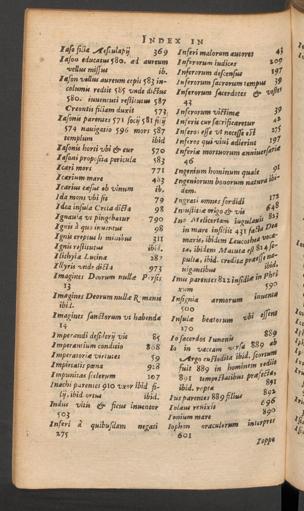 INDEX IN
Iaso filia Æsculapij 369
Iason educatus 580. ad aureum
vellus missus ib.
Iason vellus aureum cepit 583 in
columis redit 585 vnde dictus
580. iuuentuti restitutus 587
Creontis filiam duxit 573
Iasonis parentes 571 socij 581 filij
574 nauigatio 596 mors 587
templum ibid
Iasonis horti vbi & cur 570
Iasoni proposita pericula 583
Icari mors 771
Icarium mare 403
Icarius cæsus ob vinum ib.
Ida mons vbi sit 79
Idea insula Creta dicta 98
Ignauia vt pingebatur 790
Ignis à quo inuentus 98
Ignis ereptus hominibus 311
Ignis restitutus ibid.
Ilithyia Lucina 287
Illyris vnde dicta 973
Imagines Deorum nullæ Persis
13
Imagines Deorum nullæ Romæ
ibid.
Imagines sanctorum vt habendæ
14
Imperandi 85
Imperantium conditio 808
Imperatoriæ virtutes 59
Impietatis pœna 928
Impunitas scelerum 207
Inachi parentes 910 vxor ibid fi-
lij. ibid. ortus ibid.
Indus vitis & ficus inuentor
503
Inferi à quibusdam negati
275
Inferi malorum autores 43
Inferorum iudices 209
Inferorum descensus 197
Inferorum sacrorum tempus 39
Inferorum sacerdotes & vestes
43
Inferorum victimæ 39
Inferis cur sacrificaretur 42
Inferos esse vt necesse est 275
Inferos qui viui adierint 197
Inferiæ mortuorum anniuersariæ
46
Ingenium hominum quale 91
Ingeniorum bonorum natura ibi-
dem.
Ingrati omnes sordidi 172
Iniustitiæ origo & vis 648
Ino Melicertam iugulauit 813
in mare insiliit 431 facta Dea
maris, ibidem Leucothea voca-
ta, ibidem Matuta eg 814 se-
pulta, ibid. credita præesse na-
uigantibus ibid.
Inus parentes 812 insidiæ in Phri
xum 590
Insignia armorum inuenta
500
Insulæ beatorum vbi essent
170
Io sacerdos Iunonis 889
Io in vaccam versa 889 ab
Argo custodita ibid. scortum
fuit 889 in hominem rediit
891 tempestatibus præfecta,
ibid. rapta 891
Ius parentes 889 filius 892
Iolaus reuixit 696
Ionium mare 890
Iophon oraculorum interpres
601
Ioppe